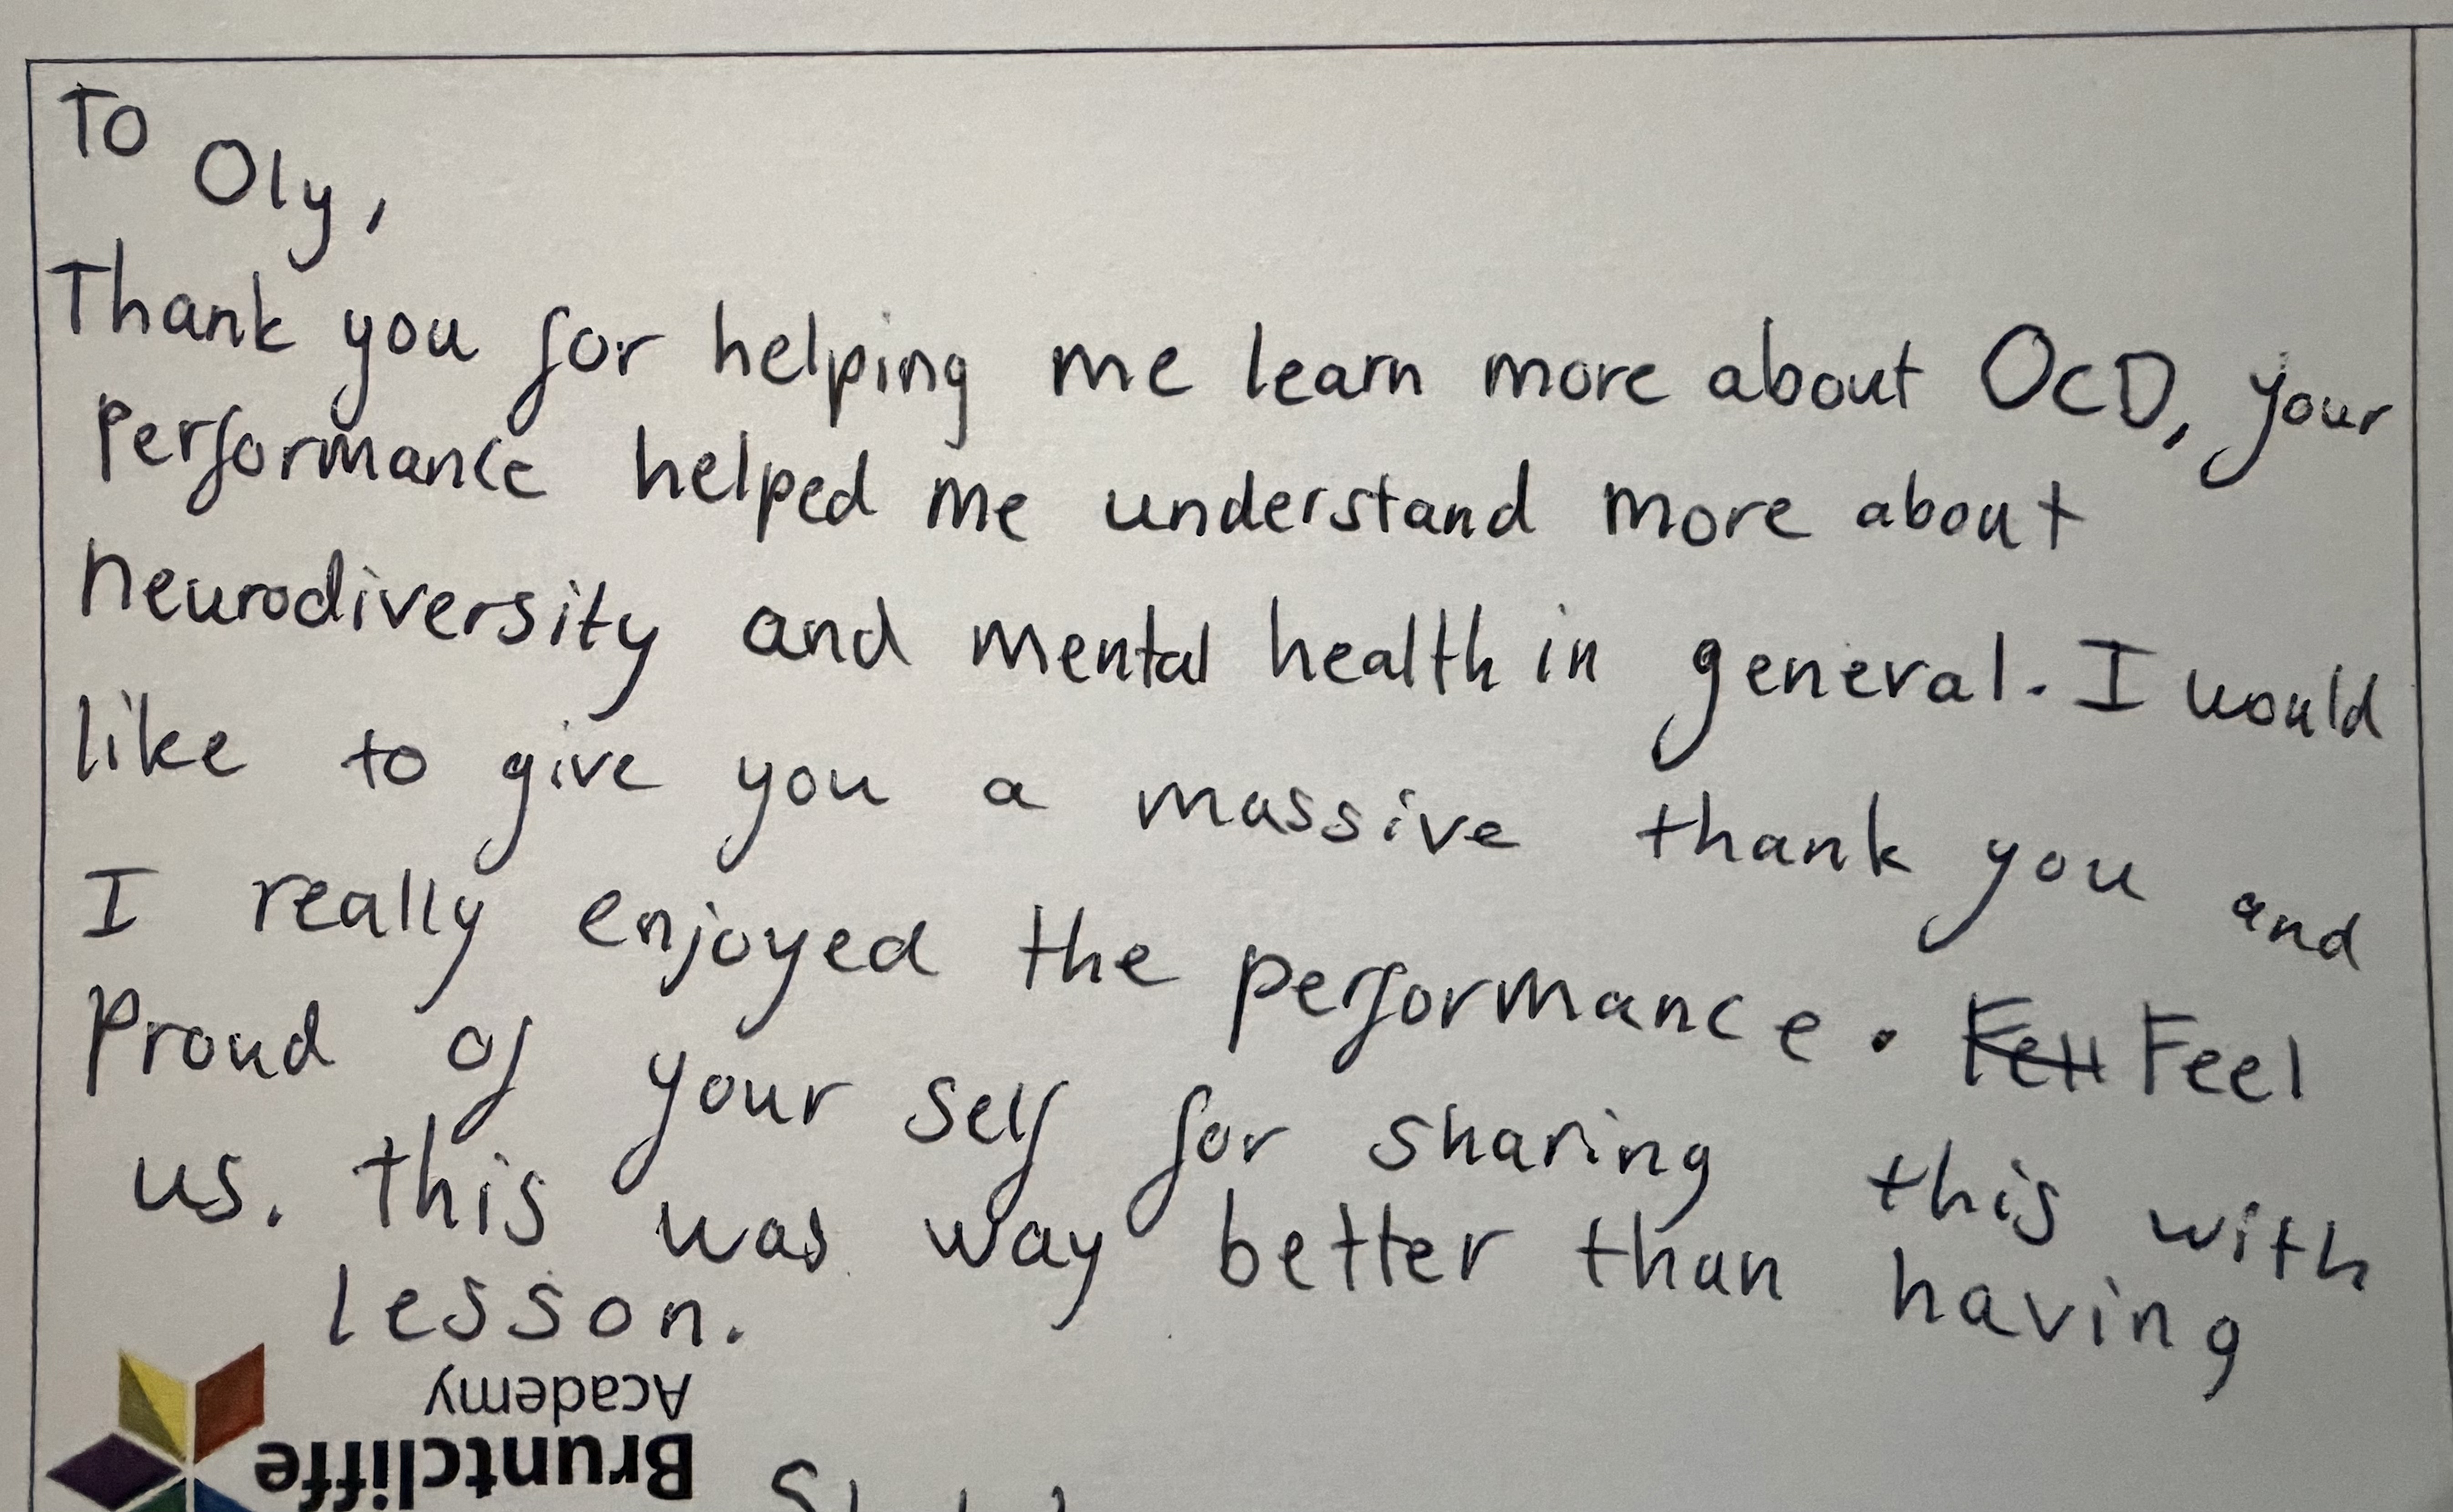 To Oly,
Thank you for helping me learn more about OCD, your
performance helped me understand more about
neurodiversity and mental health in general. I would
like to give you a massive thank you and
I really enjoyed the performance. Feel
Proud of your self for sharing this with
us. this was way better than having
lesson.
Academy
Bruntcliffe